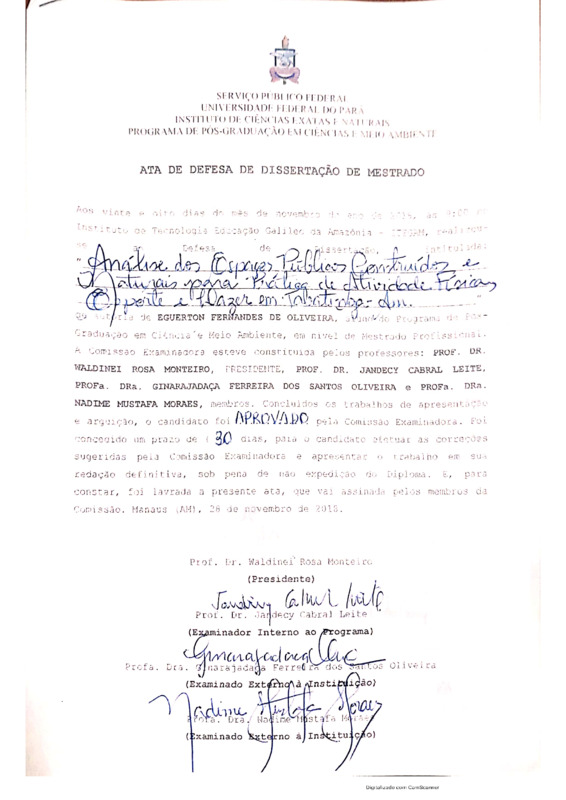 SERVIÇO PÚBLICO FEDERAL
UNIVERSIDADE FEDERAL DO PARÁ
INSTITUTO DE CIÊNCIAS EXATAS E NATURAIS
PROGRAMA DE PÓS-GRADUAÇÃO EM CIÊNCIAS E MEIO AMBIENTE
ATA DE DEFESA DE DISSERTAÇÃO DE MESTRADO
Aos vinte e oito dias do mês de novembro do ano de às 9:00 no
Instituto de Tecnologia Educação Galileo da Amazônia - ITEGAM,
Defesa de Dissertação, intitulada:
"Análise dos Espaços Públicos Construídos e
Naturais para Prática de Atividade Física,
Esporte e Lazer em Tabatinga-Am."
De autoria de EGUERTON FERNANDES DE OLIVEIRA, aluno do Programa de Pós-
Graduação em Ciência e Meio Ambiente, em nível de Mestrado Profissional.
A Comissão Examinadora esteve constituída pelos professores: PROF. DR.
WALDINEI ROSA MONTEIRO, PRESIDENTE, PROF. DR. JANDECY CABRAL LEITE,
PROFa. DRa. GINARAJADAÇA FERREIRA DOS SANTOS OLIVEIRA e PROFa. DRa.
NADIME MUSTAFA MORAES, membros. Concluídos os trabalhos de apresentação
e arguição, o candidato foi APROVADO pela Comissão Examinadora. Foi
concedido um prazo de 30 dias, para o candidato efetuar as correções
sugeridas pela Comissão Examinadora e apresentar o trabalho em sua
redação definitiva, sob pena de não expedição do Diploma. E, para
constar, foi lavrada a presente ata, que vai assinada pelos membros da
Comissão. Manaus (AM), 28 de novembro de 2018.
Prof. Dr. Waldinei Rosa Monteiro
(Presidente)
Jandecy Cabral Leite
Prof. Dr. Jandecy Cabral Leite
(Examinador Interno ao Programa)
Profa. Dra. Ginarajadaça Ferreira dos Santos Oliveira
(Examinado Externo à Instituição)
Nadime Mustafa Moraes
Profa. Dra. Nadime Mustafa Moraes
(Examinado Externo á Instituição)
Digitalizado com CamScanner